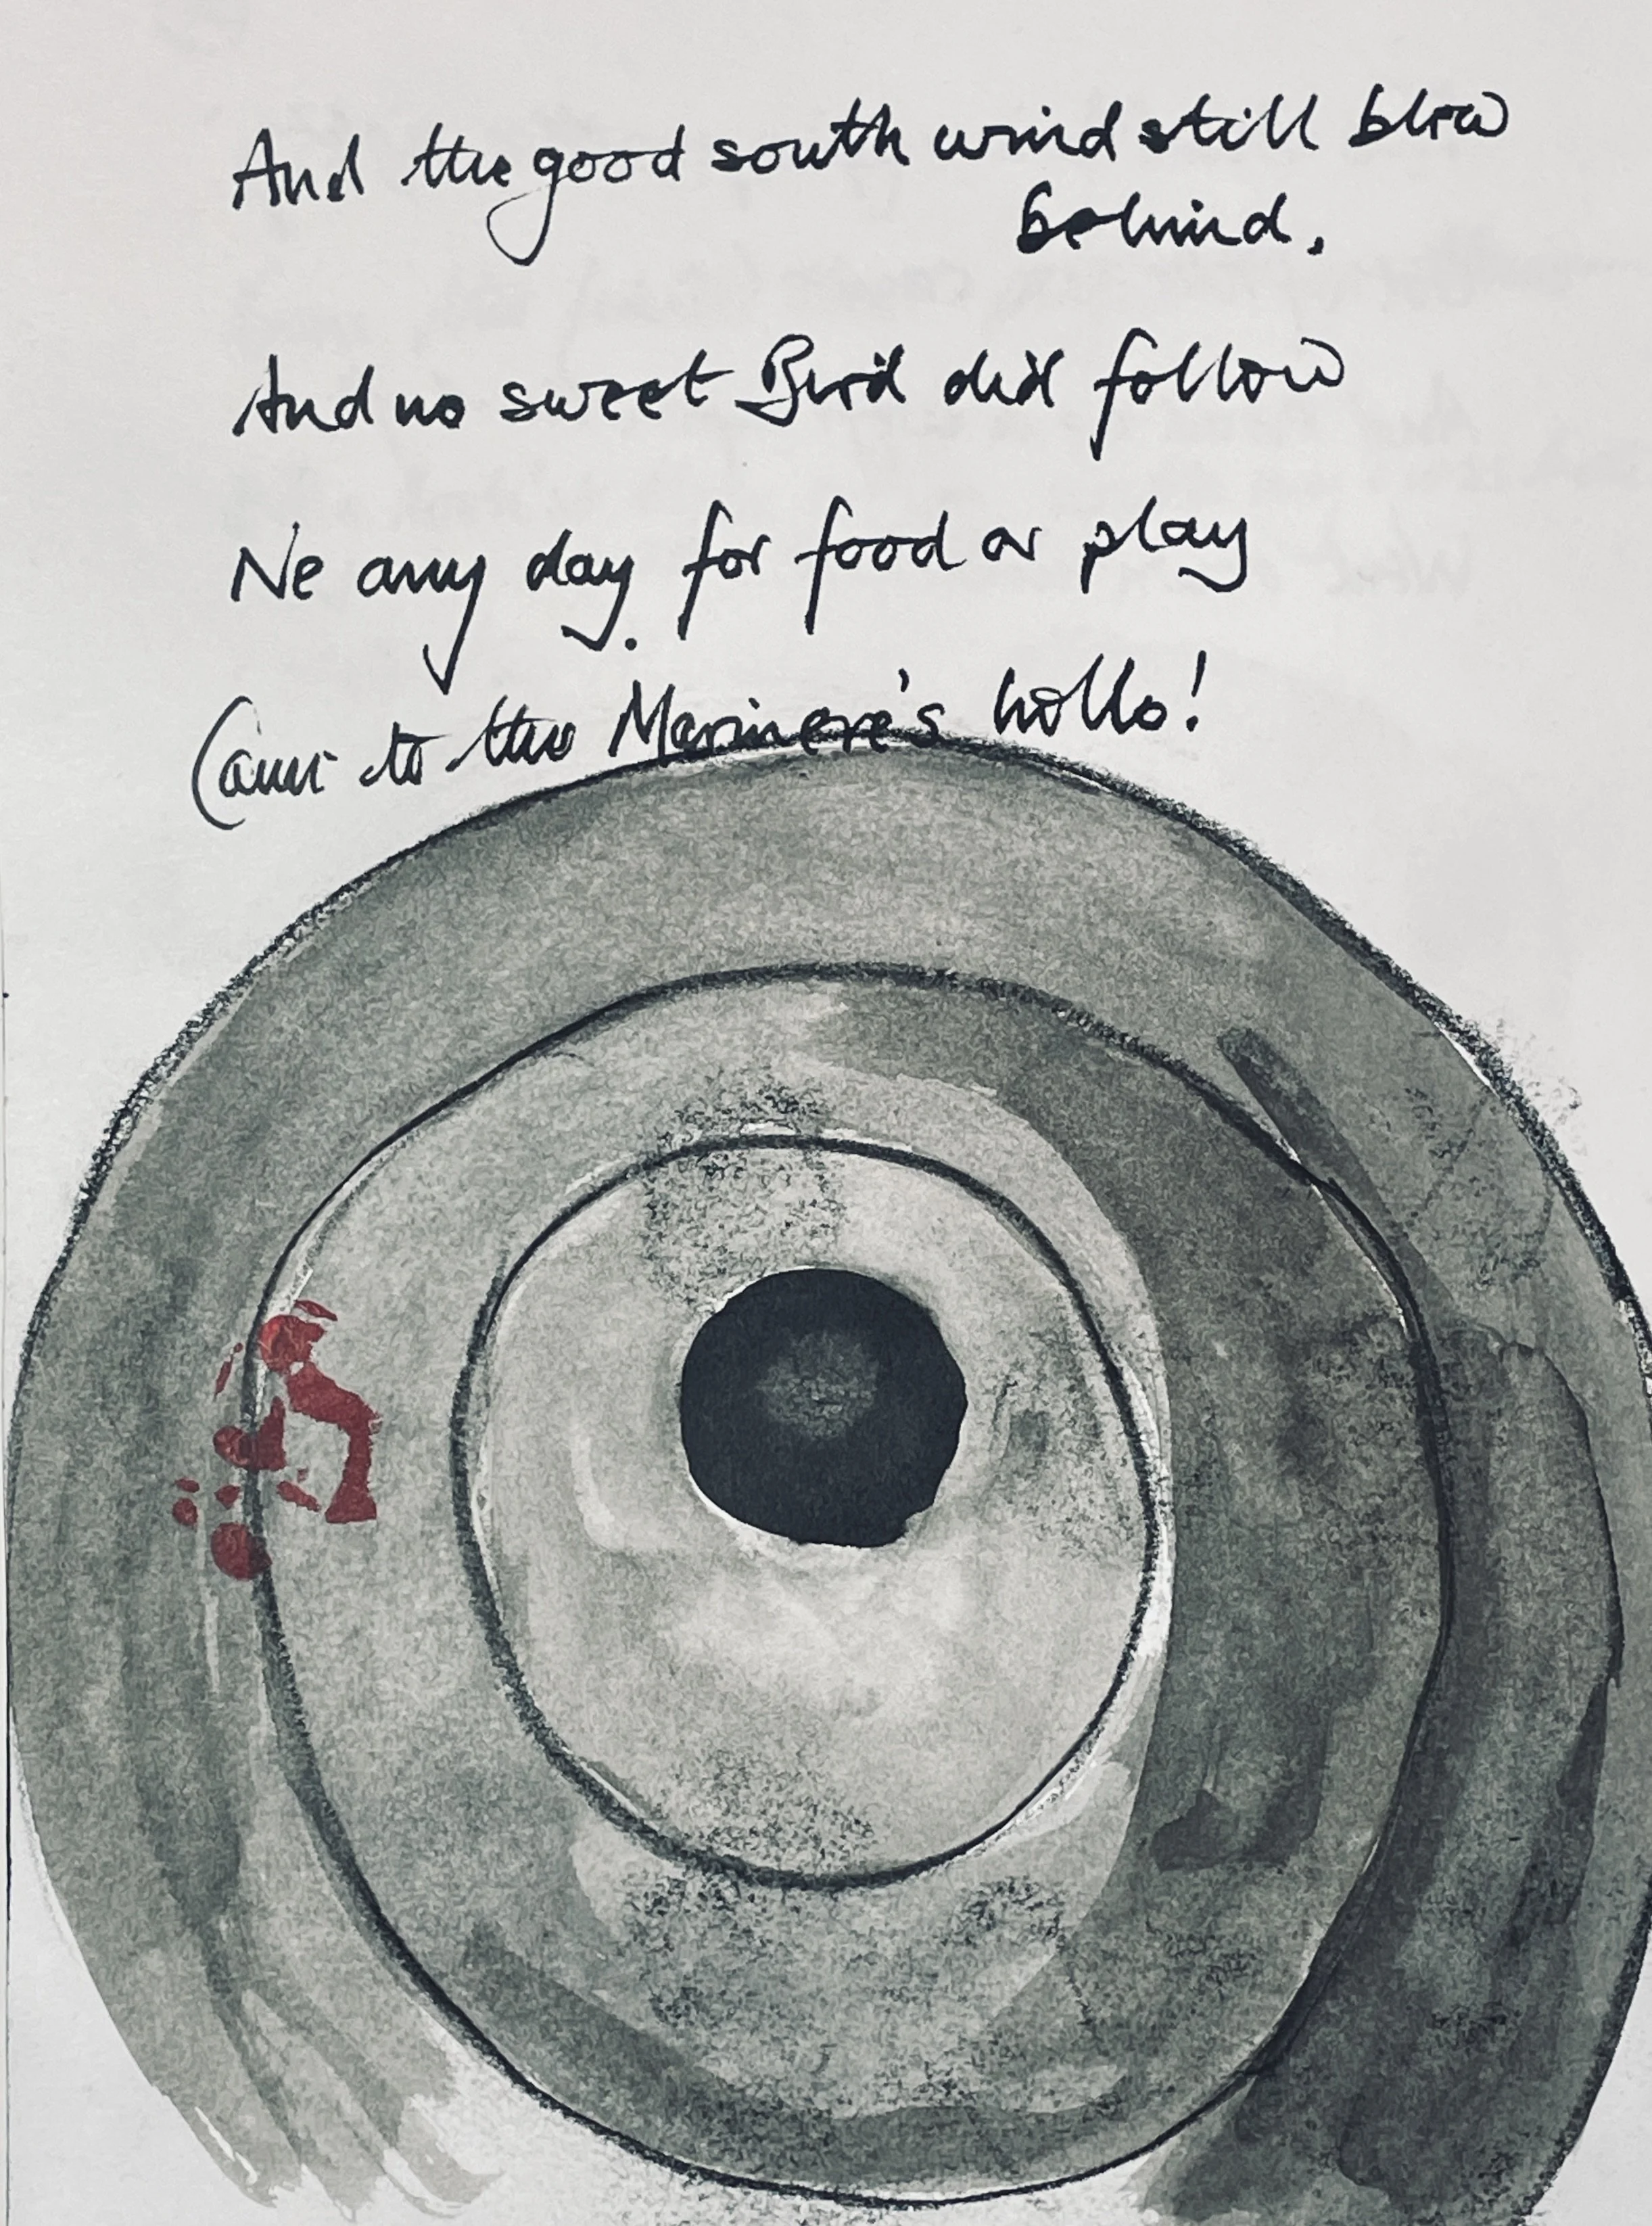 And the good south wind still blew
behind.
And no sweet Bird did follow
Ne any day for food or play
Came to the Marinere's hollo!